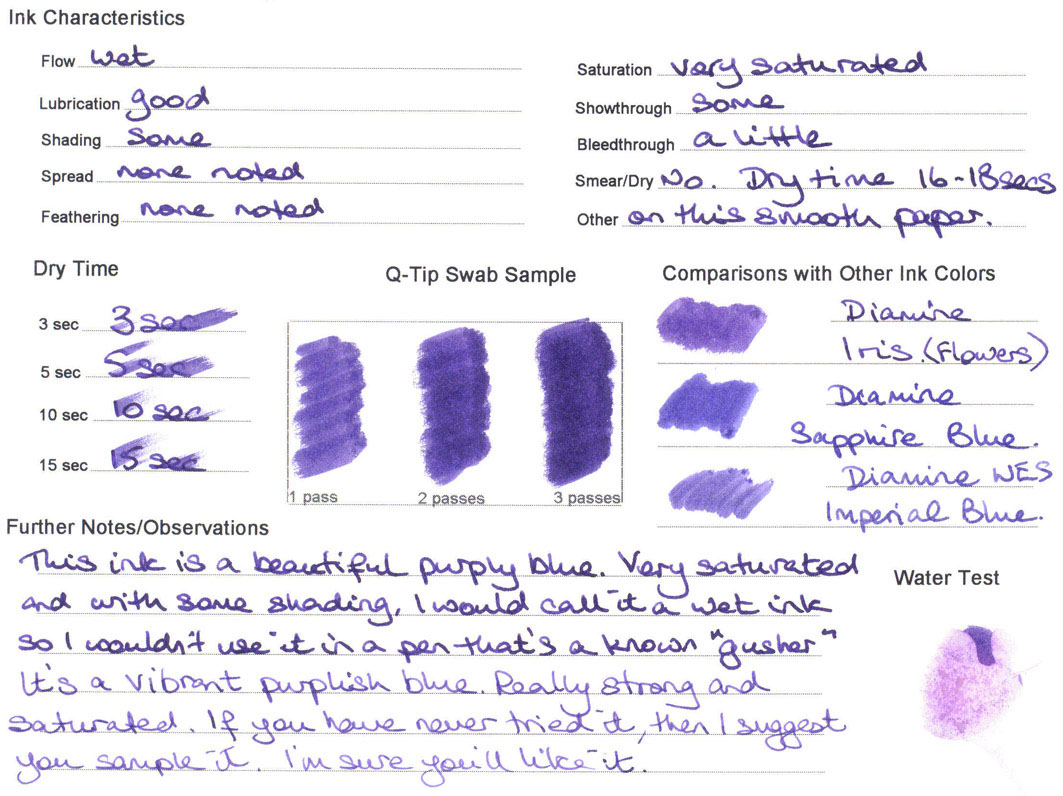 Ink Characteristics
Flow wet
Lubrication good
Shading Some
Spread none noted
Feathering none noted
Saturation very saturated
Showthrough some
Bleedthrough a little
Smear/Dry No. Dry time 16-18secs
Other on this smooth paper.
Dry Time
3 sec 3 sec
5 sec 5 sec
10 sec 10 sec
15 sec 15 sec
Q-Tip Swab Sample
1 pass 2 passes 3 passes
Comparisons with Other Ink Colors
Diamine
Iris. (Flowers)
Diamine
Sapphire Blue.
Diamine WES
Imperial Blue.
Further Notes/Observations
This ink is a beautiful purply blue. Very saturated
and with some shading. I would call it a wet ink
so I wouldn't use it in a pen that's a known "gusher"
It's a vibrant purplish blue. Really strong and
saturated. If you have never tried it, then I suggest
you sample it. I'm sure you'll like it.
Water Test